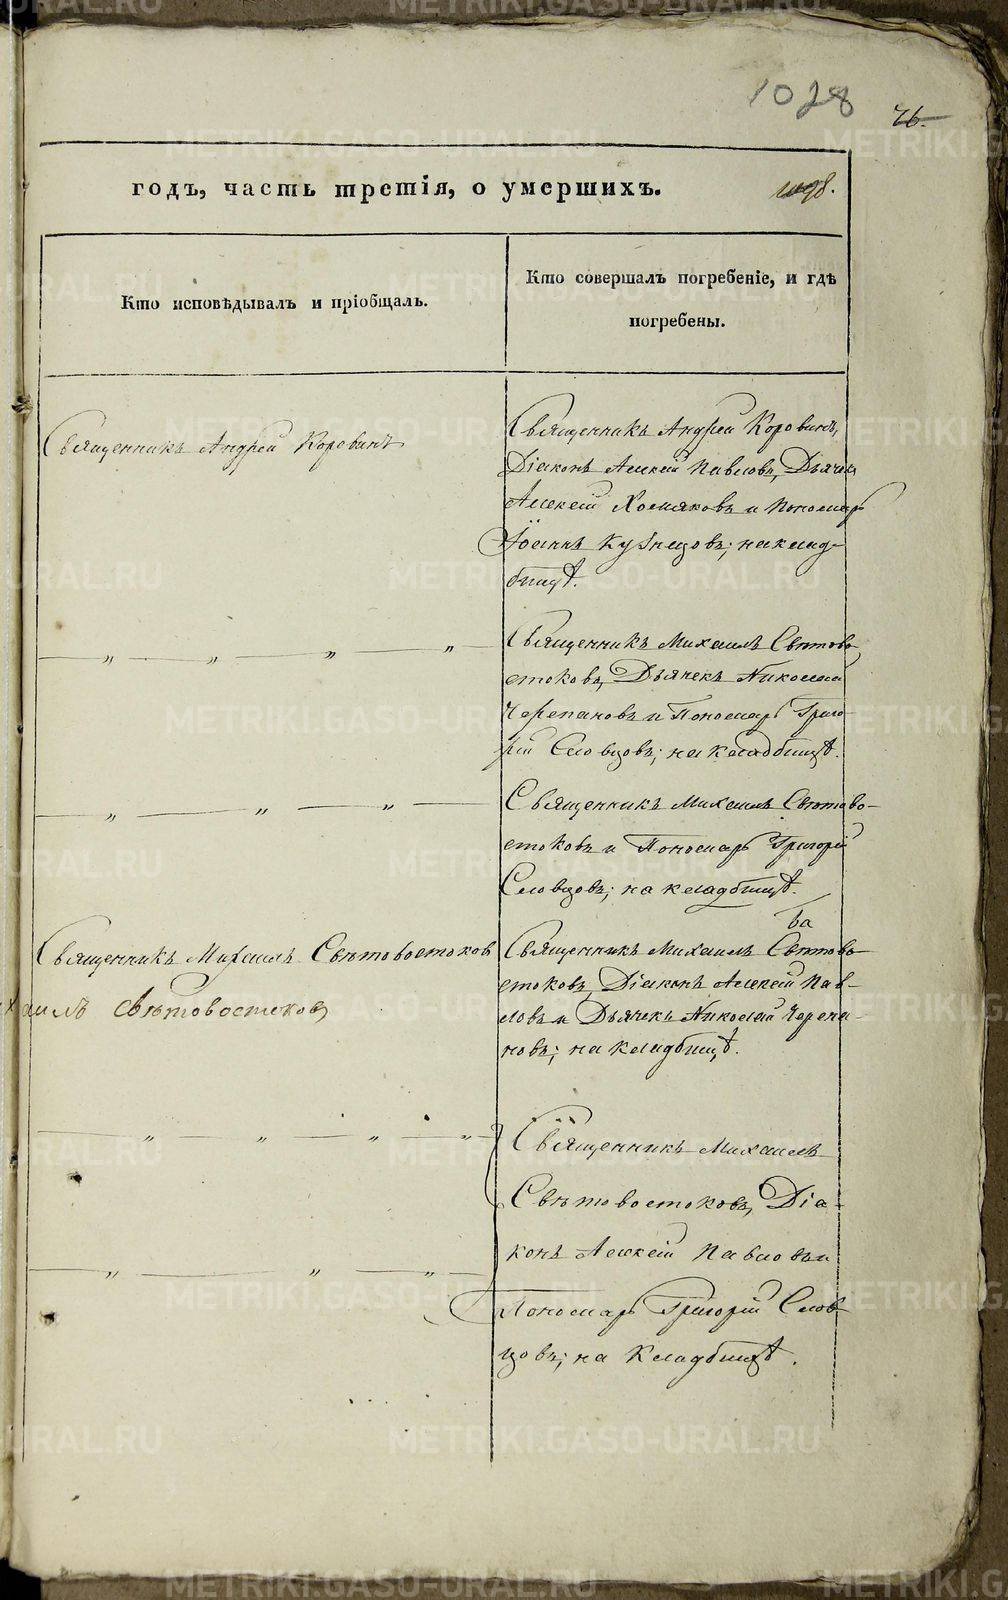 1028
76.
годъ, часть третія, о умершихъ.
Кто исповѣдывалъ и пріобщалъ.
Кто совершалъ погребеніе, и гдѣ
погребены.
Священникъ Андрей Коровинъ
Священникъ Андрей Коровинъ,
Діаконъ Алексій Павловъ, Дьячек
Алексій Хомяковъ и Пономарь
Іоаннъ Кузнецовъ; на клад-
бищѣ.
— „ — „ — „ — „ —
Священникъ Михаилъ Свѣтово-
стоковъ, Дьячекъ Николай
Черепановъ и Пономарь Григо-
рій Словцовъ; на кладбищѣ.
— „ — „ — „ —
Священникъ Михаилъ Свѣтово-
стоковъ и Пономарь Григорій
Словцовъ; на кладбищѣ.
Священникъ Михаилъ Свѣтовостоков
Священникъ Михаилъ Свѣтово-
стоковъ, Діаконъ Алексій Пав-
ловъ и Дьячекъ Николай Черепа-
новъ; на кладбищѣ.
хаилъ Свѣтовостоковъ
— „ — „ — „ — „ —
Священникъ Михаилъ
Свѣтовостоковъ, Діа-
конъ Алексій Павловъ и
— „ — „ — „ —
Пономарь Григорій Слов-
цовъ; на Кладбищѣ.
METRIKI.GASO-URAL.RU